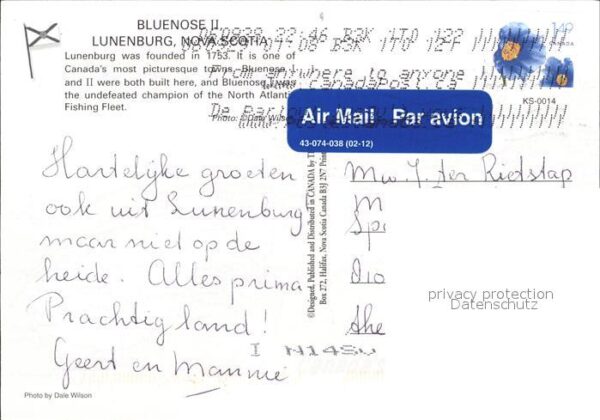 BLUENOSE II,
LUNENBURG, NOVA SCOTIA
Lunenburg was founded in 1753. It is one of
Canada's most picturesque towns. Bluenose I
and II were both built here, and Bluenose I was
the undefeated champion of the North Atlantic
Fishing Fleet.
Photo: © Dale Wilson
22:46 B3K 1T0 122
01-08 B3K 1T0 12F
From anywhere to anyone
canadapost.ca
De partout
CANADA
KS-0014
Air Mail Par avion
43-074-038 (02-12)
Hartelijke groeten
ook uit Lunenburg
maar niet op de
heide. Alles prima
Prachtig land!
Geert en Mannie
©Designed, Published and Distributed in CANADA by
Box 272, Halifax, Nova Scotia Canada B3J 2N7
Mw. J. ter Rietstap
M
Spi
Dio
the
privacy protection
Datenschutz
Photo by Dale Wilson